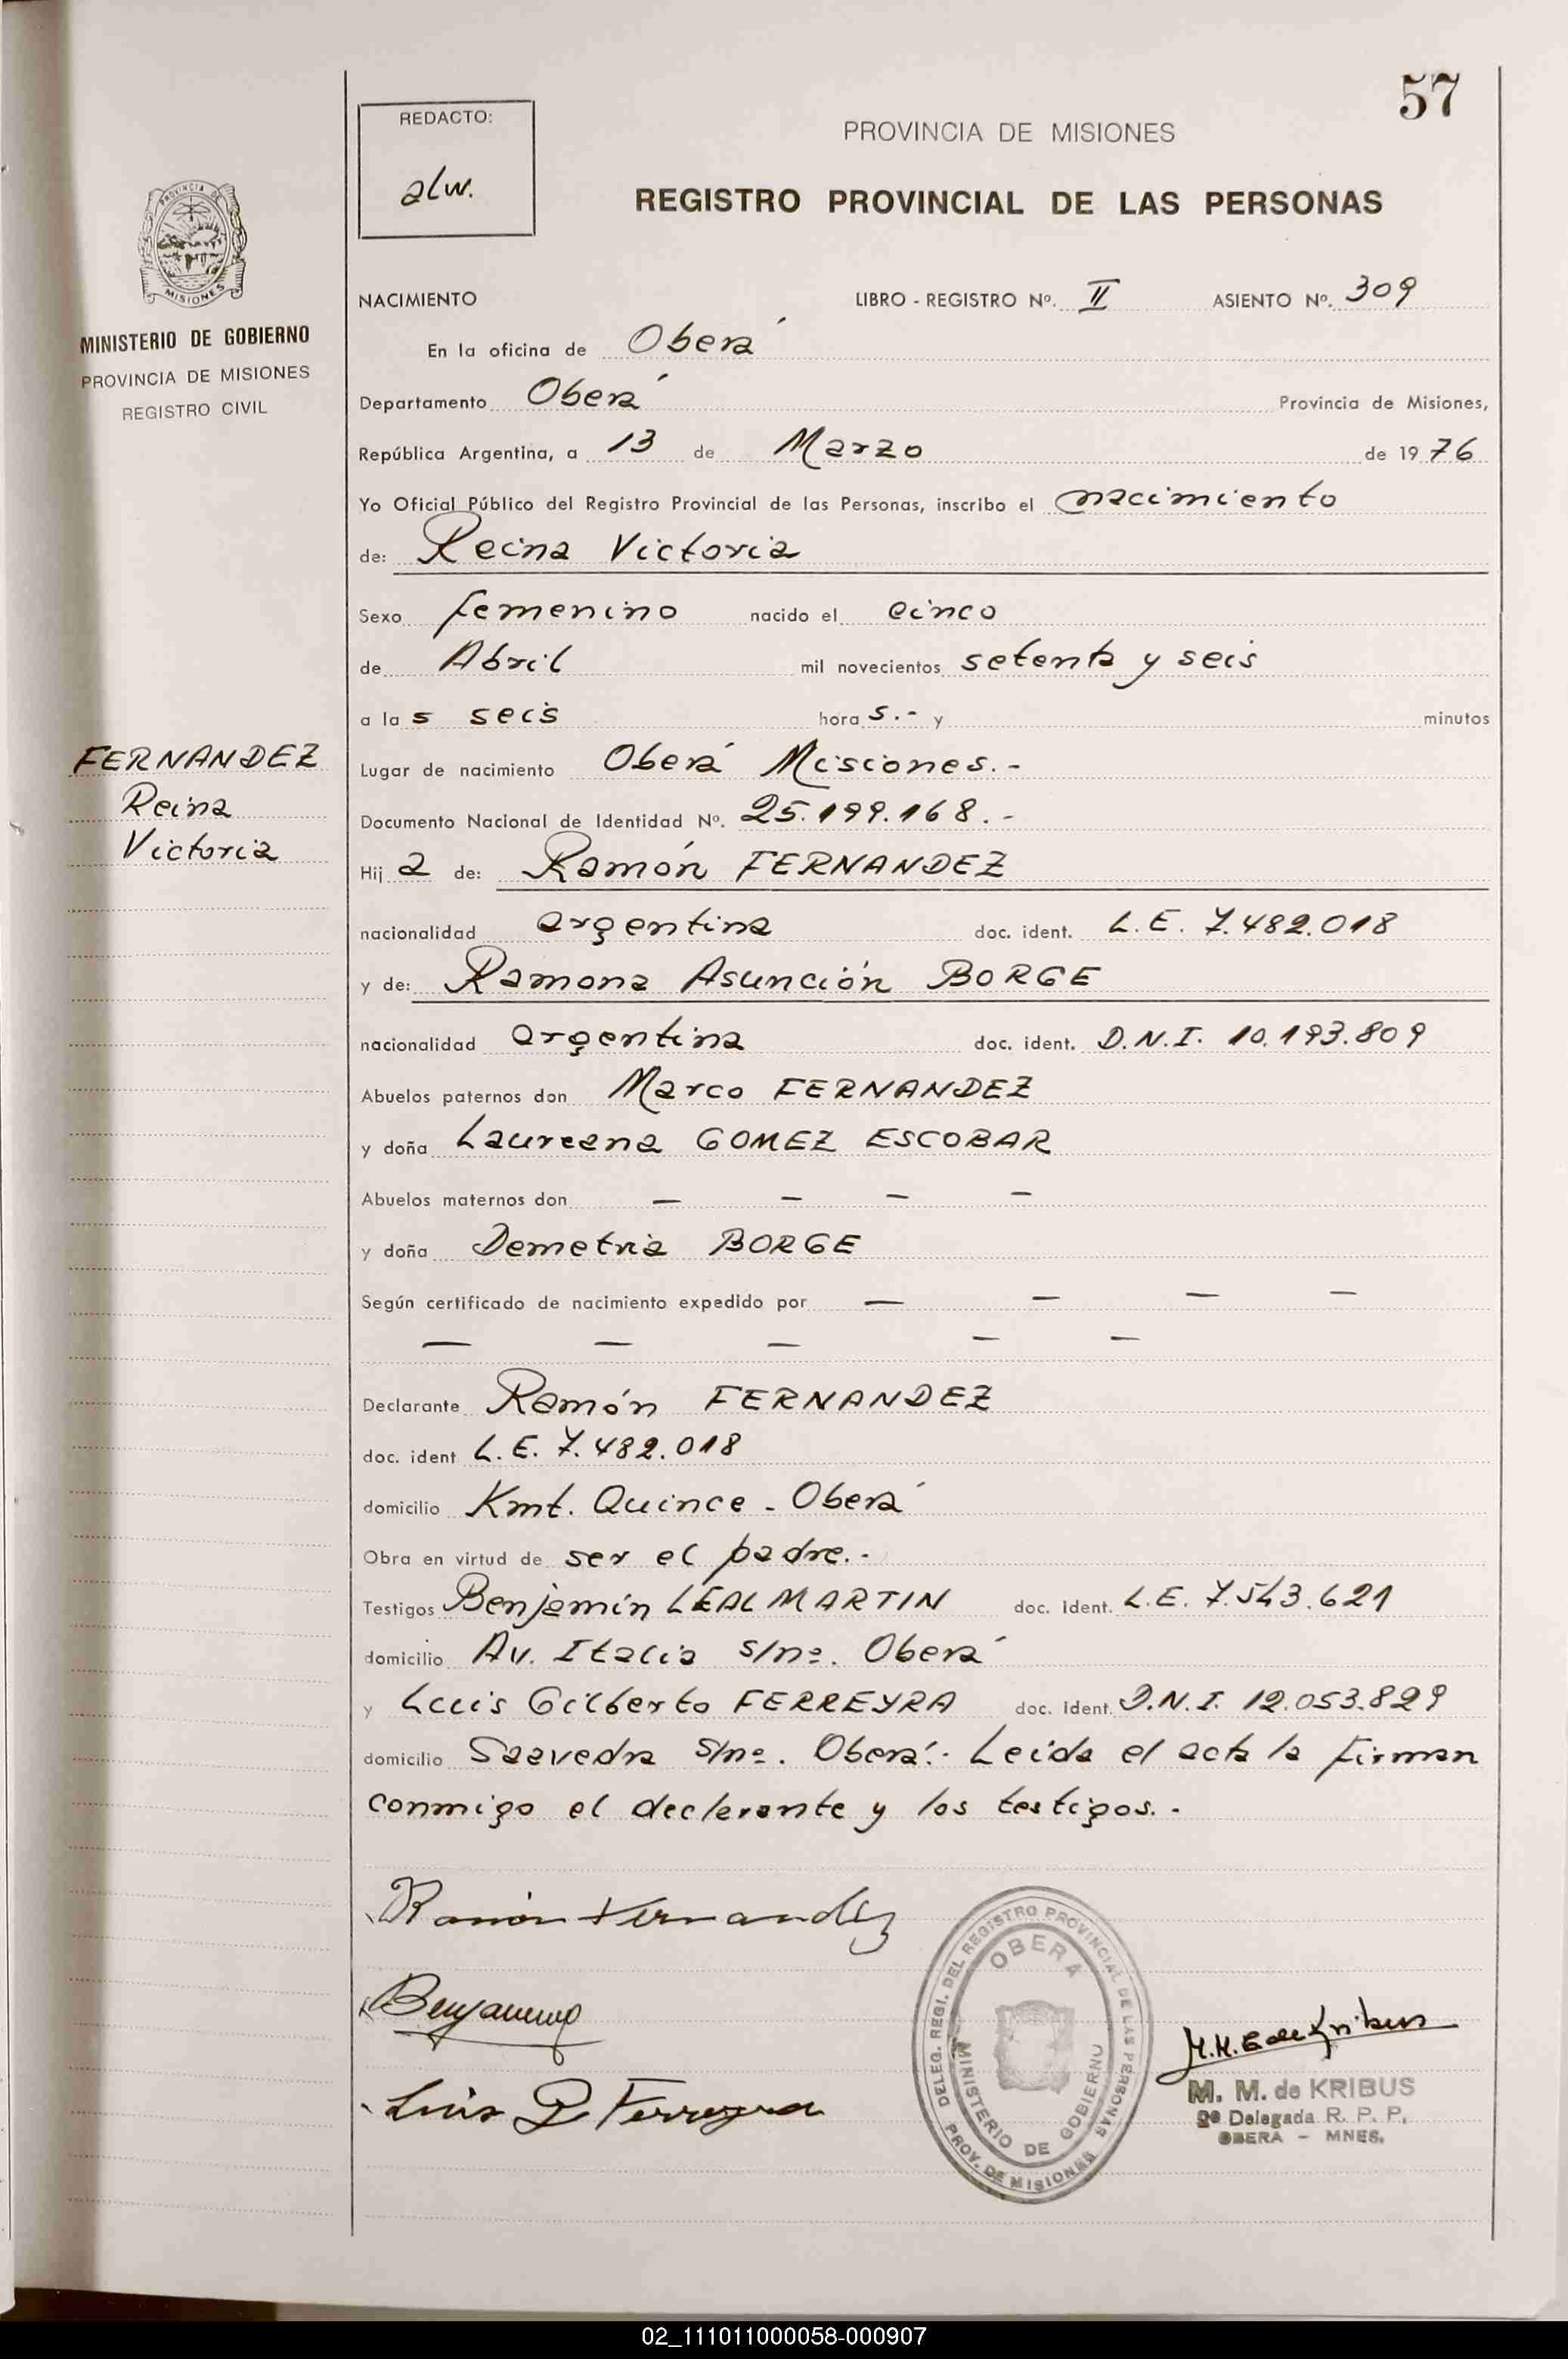 57
REDACTO:
alw.
PROVINCIA DE MISIONES
REGISTRO PROVINCIAL DE LAS PERSONAS
PROVINCIA DE
MISIONES
MINISTERIO DE GOBIERNO
PROVINCIA DE MISIONES
REGISTRO CIVIL
NACIMIENTO LIBRO - REGISTRO Nº. II ASIENTO Nº. 309
En la oficina de Oberá
Departamento Oberá Provincia de Misiones,
República Argentina, a 13 de Marzo de 1976
Yo Oficial Público del Registro Provincial de las Personas, inscribo el nacimiento
de: Reina Victoria
Sexo femenino nacido el cinco
de Abril mil novecientos setenta y seis
a las seis horas.- y minutos
FERNANDEZ
Reina
Victoria
Lugar de nacimiento Oberá Misiones.-
Documento Nacional de Identidad Nº. 25.199.168.-
Hija de: Ramón FERNANDEZ
nacionalidad argentina doc. ident. L.E. 7.482.018
y de: Ramona Asunción BORGE
nacionalidad argentina doc. ident. D.N.I. 10.193.809
Abuelos paternos don Marco FERNANDEZ
y doña Laureana GOMEZ ESCOBAR
Abuelos maternos don — — — —
y doña Demetria BORGE
Según certificado de nacimiento expedido por — — — —
— — — — —
Declarante Ramón FERNANDEZ
doc. ident L.E. 7.482.018
domicilio Kmt. Quince - Oberá
Obra en virtud de ser el padre.-
Testigos Benjamín LEAL MARTIN doc. ident. L.E. 7.543.621
domicilio Av. Italia s/nº. Oberá
y Luis Gilberto FERREYRA doc. ident. D.N.I. 12.053.829
domicilio Saavedra s/nº. Oberá.- Leida el acta la firman
conmigo el declarante y los testigos.-
Ramón Fernandez
Benjamin
Luis G Ferreyra
DELEG. REGI. DEL REGISTRO PROVINCIAL DE LAS PERSONAS
PROV. DE MISIONES
OBERA
MINISTERIO DE GOBIERNO
M.M.E de Kribus
M. M. de KRIBUS
2ª Delegada R. P. P.
OBERA - MNES.
02_111011000058-000907